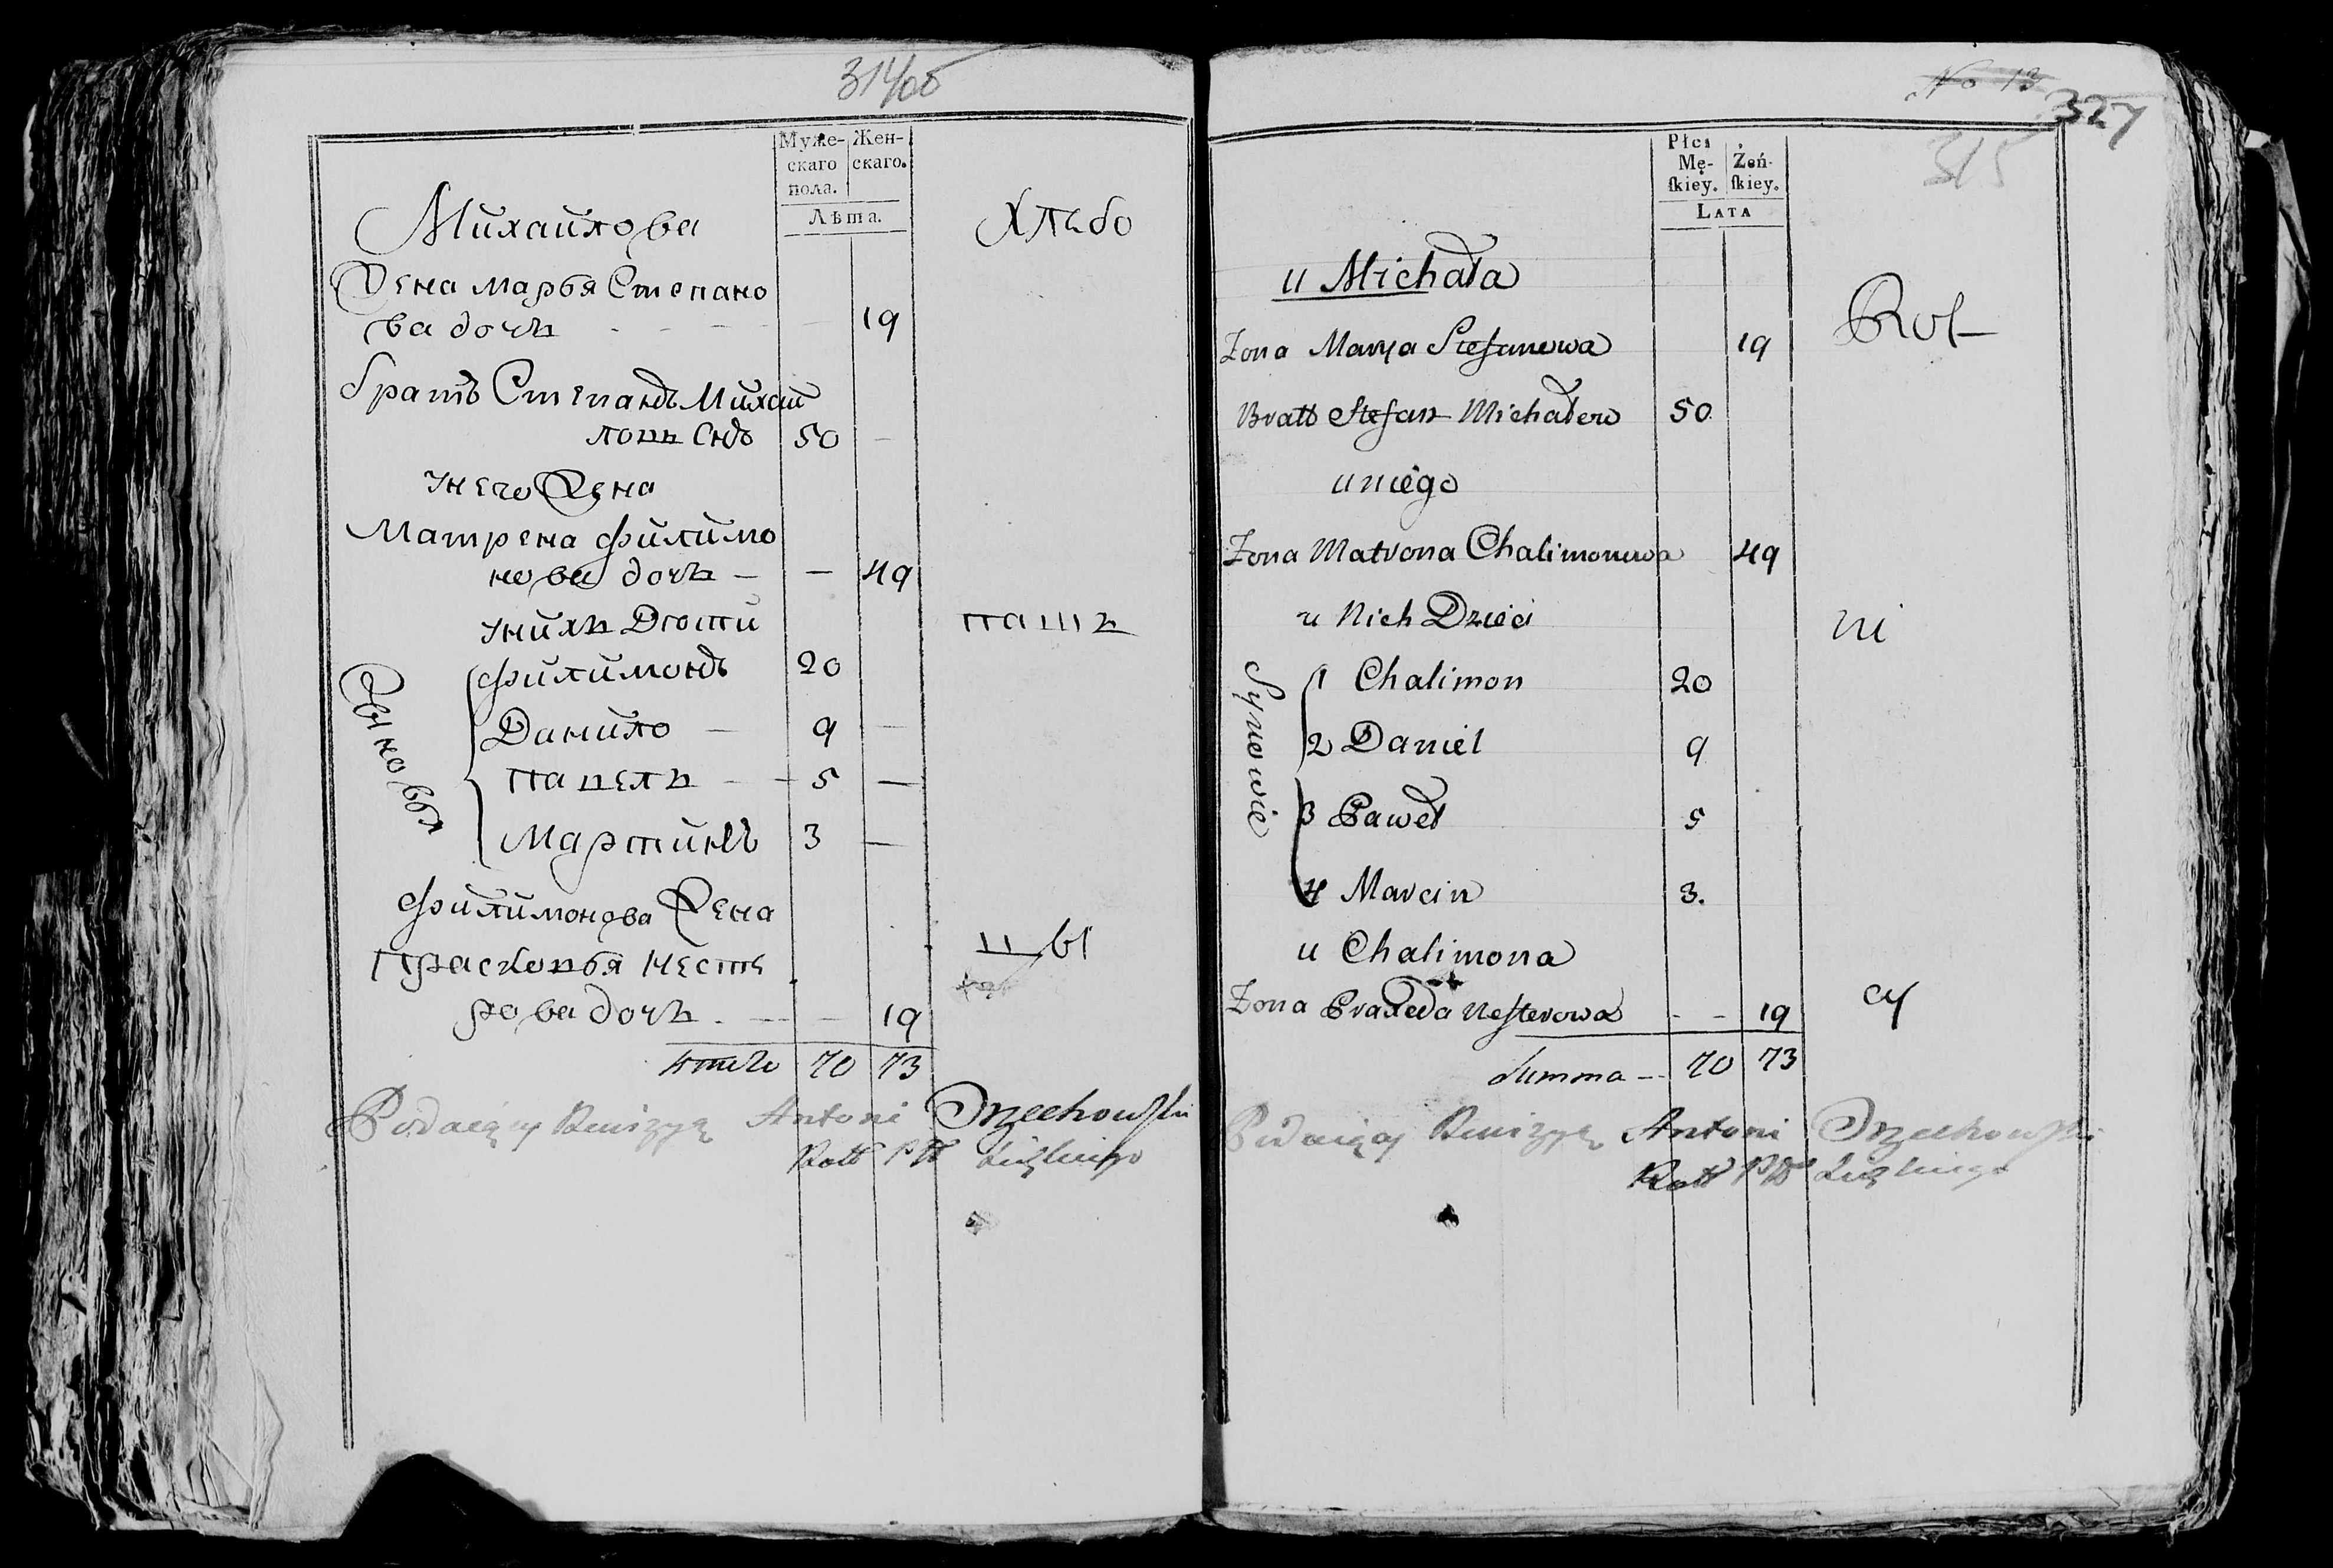 314об
Муже-
скаго
пола.
Жен-
скаго.
Лѣта.
Михайлова
Хлѣбо
Жена марья Степано
ва дочь 19
братъ Степанъ Михай
ловъ Снъ 50
унего Жена
Матрена филимо
нова дочь 49
унихъ Дѣти
паш
Сыновья
филимонъ 20
Данило 9
павелъ 5
Мартинъ 3
филимонова Жена
цы
Прасковья Несте
рова дочь 19
итого 70 73
Podaiący Rewizyą Antoni Orzechowski
Rott
No 13
327
315
Płci
Mę-
ſkiey.
Żeń-
ſkiey.
LATA
u Michała
Rol
Zona Marya Stefanowa 19
Bratt Stefan Michałow 50
uniego
Zona Matrona Chalimonowa 49
u Nich Dzieci
ni
Synowie
1 Chalimon 20
2 Daniel 9
3 Paweł 5
4 Marcin 3.
u Chalimona
cy
Zona Praxeda Nesterowa 19
Summa 70 73
Podaiący Rewizyą Antoni Orzechowski
Rott